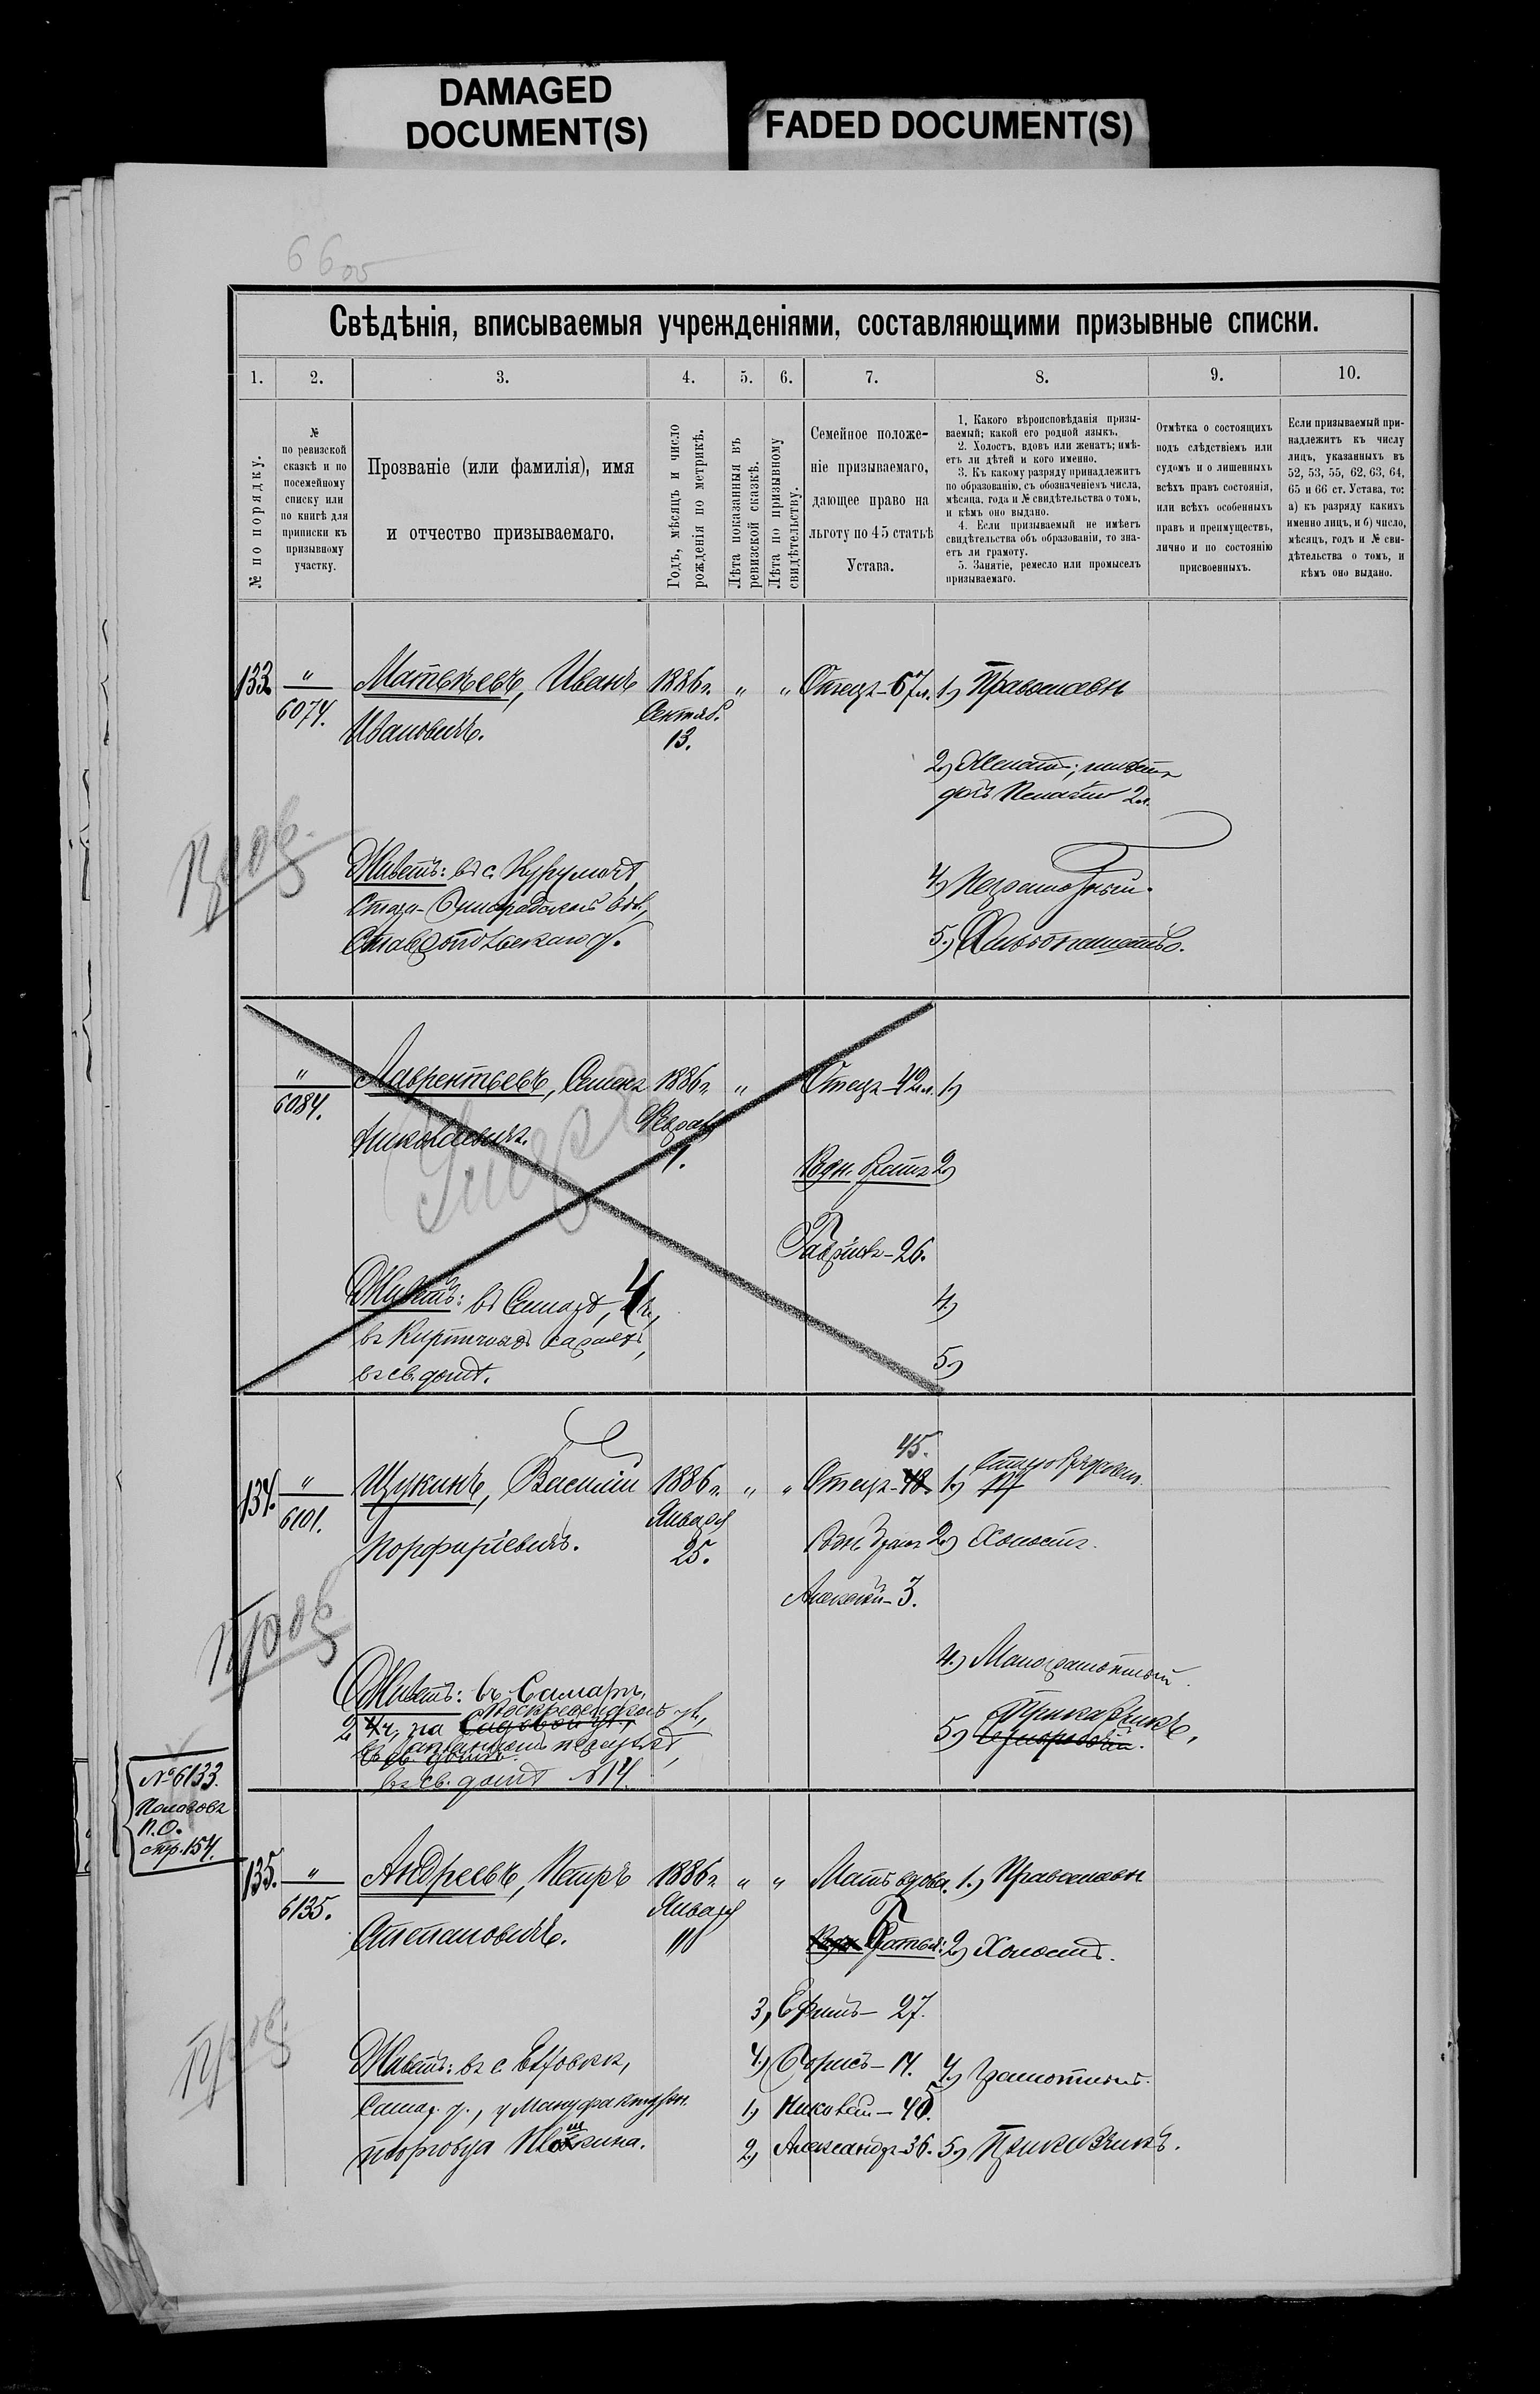 DAMAGED
DOCUMENT(S)
FADED DOCUMENT(S)
66 об
Свѣдѣнія, вписываемыя учрежденіями, составляющими призывные списки.
1. 2. 3. 4. 5. 6. 7. 8. 9. 10.
№ по порядку.
№
по ревизской
сказкѣ и по
посемейному
списку или
по книгѣ для
приписки къ
призывному
участку.
Прозваніе (или фамилія), имя
и отчество призываемаго.
Годъ, мѣсяцъ и число
рожденія по метрикѣ.
Лѣта показанныя въ
ревизской сказкѣ.
Лѣта по призывному
свидѣтельству.
Семейное положе-
ніе призываемаго,
дающее право на
льготу по 45 статьѣ
Устава.
1. Какого вѣроисповѣданія призы-
ваемый; какой его родной языкъ.
2. Холостъ, вдовъ или женатъ; имѣ-
етъ ли дѣтей и кого именно.
3. Къ какому разряду принадлежитъ
по образованію, съ обозначеніемъ числа,
мѣсяца, года и № свидѣтельства о томъ,
и кѣмъ оно выдано.
4. Если призываемый не имѣетъ
свидѣтельства объ образованіи, то зна-
етъ ли грамоту.
5. Занятіе, ремесло или промыселъ
призываемаго.
Отмѣтка о состоящихъ
подъ слѣдствіемъ или
судомъ и о лишенныхъ
всѣхъ правъ состоянія,
или всѣхъ особенныхъ
правъ и преимуществъ,
лично и по состоянію
присвоенныхъ.
Если призываемый при-
надлежитъ къ числу
лицъ, указанныхъ въ
52, 53, 55, 62, 63, 64,
65 и 66 ст. Устава, то:
а) къ разряду какихъ
именно лицъ, и б) число,
мѣсяцъ, годъ и № сви-
дѣтельства о томъ, и
кѣмъ оно выдано.
133. " Матвѣевъ, Иванъ 1886 г. " " Отецъ – 67 л. 1) Православн
6074. Ивановичъ. Сентяб.
13.
2) Женатъ; имѣетъ
2 л.
Пров.
Живетъ: въ с. Курумочѣ,
Ставропольскаго у.
4) Неграмотный.
5.) Хлѣбопашество.
" Лаврентьевъ, Семенъ 1886 г. " Отецъ – 42 л. 1)
6084. Николаевичъ. Февраля
1.
Умеръ
Родн. братъ 2)
Гавріилъ – 26.
Живетъ: въ Самарѣ, 4 ч.,
въ Кирпичныхъ сараяхъ,
въ св. домѣ.
4)
5)
45.
134. " Щукинъ, Василій 1886 г. " " Отецъ – 48. 1)
6101. Порфирьевичъ. Января
25.
Родн. братъ 2) Холостъ.
Алексѣй – 3.
Пров
4.) Малограмотный.
Живетъ: въ Самарѣ,
Воскресенской ул.,
2 4 ч., на Садовой ул.,
въ св. домѣ.
въ св. домѣ № 14.
Прикащикъ,
5) Чернорабочій.
№ 6133.
П. О.
стр. 154.
135. " Андреевъ, Петръ 1886 г. " " Мать вдова. 1.) Православн
6135. Степановичъ. Января
Родн Братья: 2) Холостъ.
3) Ефимъ – 27.
Пров.
Живетъ: въ с. Елховкѣ,
4) Борисъ – 14. 4) Грамотный.
Самар. у., у Мануфактурн.
1) Николай – 40.
торговца
2) Александръ – 36. 5) Прикащикъ.